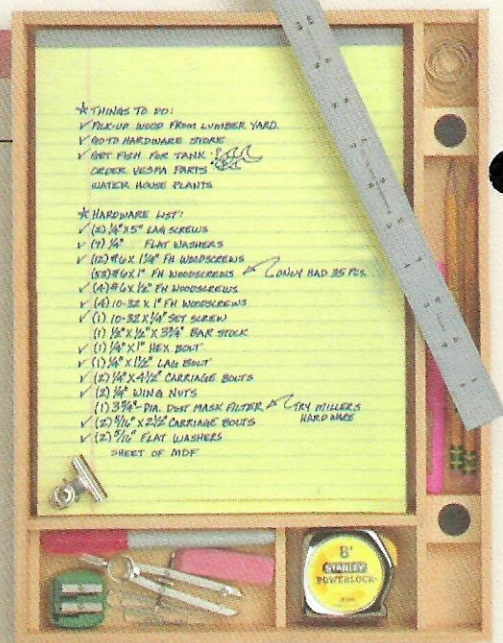 ★ THINGS TO DO:
✓ PICK-UP WOOD FROM LUMBER YARD.
✓ GO TO HARDWARE STORE
✓ GET FISH FOR TANK
ORDER VESPA PARTS
WATER HOUSE PLANTS
★ HARDWARE LIST:
✓ (2) 1/4" X 5" LAG SCREWS
✓ (7) 1/4" FLAT WASHERS
✓ (12) #6 X 1 1/4" FH WOODSCREWS
(53) #6 X 1" FH WOODSCREWS ONLY HAD 35 PCS.
✓ (4) #6 X 1/2" FH WOODSCREWS
✓ (4) 10-32 X 1" FH WOODSCREWS
✓ (1) 10-32 X 1/4" SET SCREW
(1) 1/2" X 1/2" X 3 3/4" BAR STOCK
✓ (1) 1/4" X 1" HEX BOLT
✓ (1) 1/4" X 1 1/2" LAG BOLT
✓ (2) 1/4" X 4 1/2" CARRIAGE BOLTS
✓ (2) 1/4" WING NUTS
(1) 3 3/4"- DIA. DUST MASK FILTER TRY MILLERS
HARDWARE
✓ (2) 5/16" X 2 1/2" CARRIAGE BOLTS
✓ (2) 5/16" FLAT WASHERS
SHEET OF MDF
8'
STANLEY
POWERLOCK